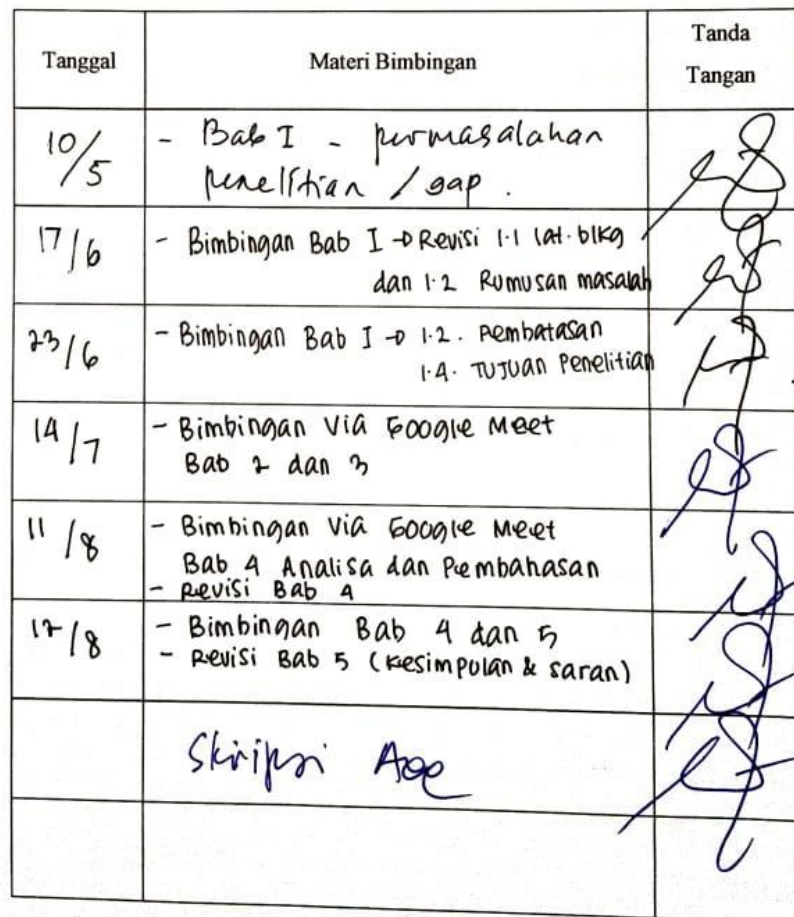 Tanggal
Materi Bimbingan
Tanda
Tangan
10/5
- Bab I - permasalahan
penelitian / gap .
17/6
- Bimbingan Bab I → Revisi 1.1 lat.blkg
dan 1.2 Rumusan masalah
23/6
- Bimbingan Bab I → 1.2. Pembatasan
1.4. Tujuan Penelitian
14/7
- Bimbingan Via Google Meet
Bab 2 dan 3
11/8
- Bimbingan Via Google Meet
Bab 4 Analisa dan Pembahasan
- Revisi Bab 4
/8
- Bimbingan Bab 4 dan 5
- Revisi Bab 5 (Kesimpulan & saran)
Skripsi Acc